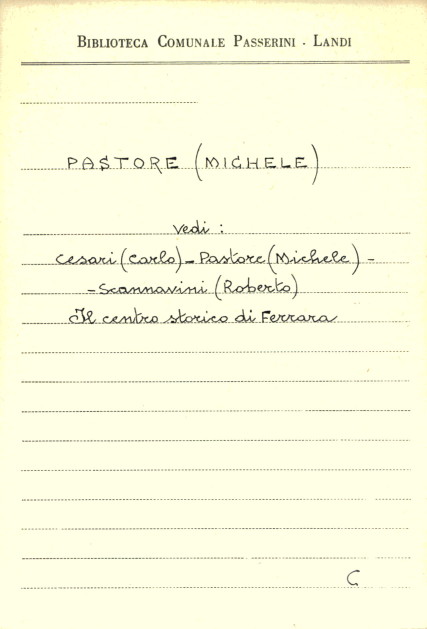 BIBLIOTECA COMUNALE PASSERINI - LANDI
PASTORE (MICHELE)
vedi :
Cesari (Carlo) - Pastore (Michele) -
- Scannavini (Roberto)
Il centro storico di Ferrara
C